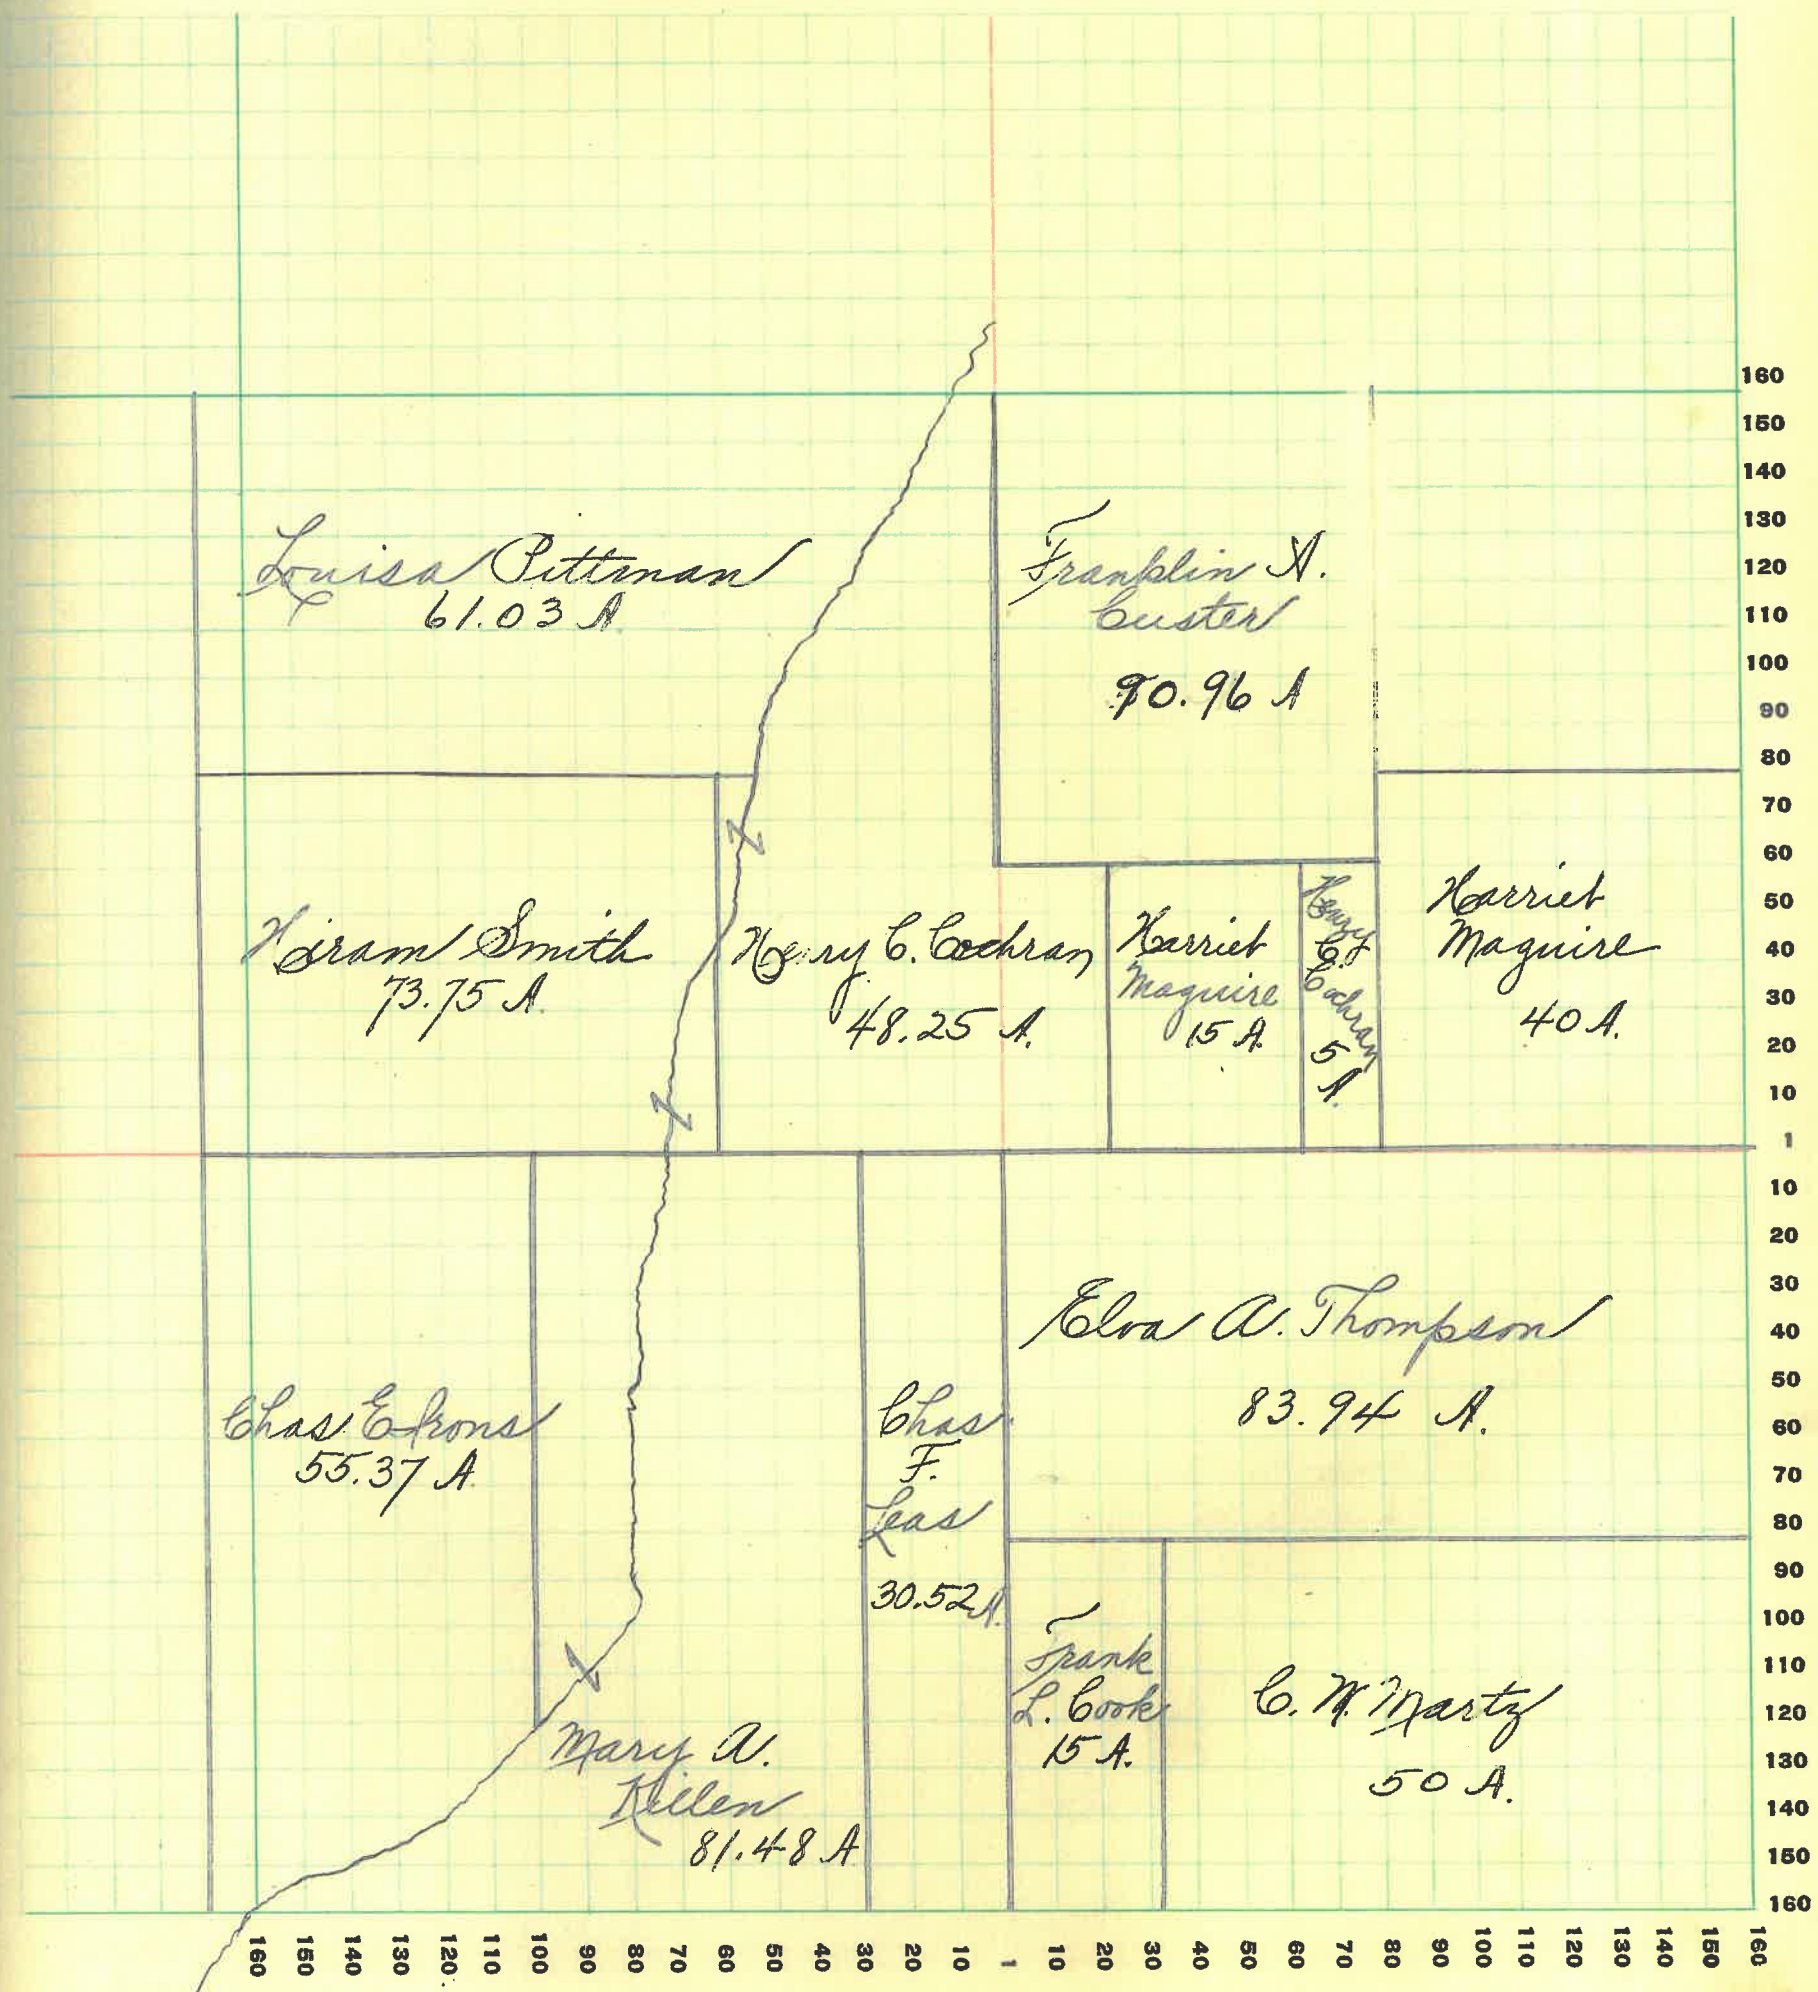 Louisa Pittman
61.03 A
Franklin A.
Custer
90.96 A
Hiram Smith
73.75 A.
Henry C. Cochran
48.25 A.
Harriet
Maguire
15 A.
Henry
C.
Cochran
5
A.
Harriet
Maguire
40 A.
Chas. E. Irons
55.37 A.
Mary A.
Killen
81.48 A
Chas
F.
Leas
30.52 A.
Elva A. Thompson
83.94 A.
Frank
L. Cook
15 A.
C. W. Martz
50 A.
160
150
140
130
120
110
100
90
80
70
60
50
40
30
20
10
1
10
20
30
40
50
60
70
80
90
100
110
120
130
140
150
160
160 150 140 130 120 110 100 90 80 70 60 50 40 30 20 10 1 10 20 30 40 50 60 70 80 90 100 110 120 130 140 150 160